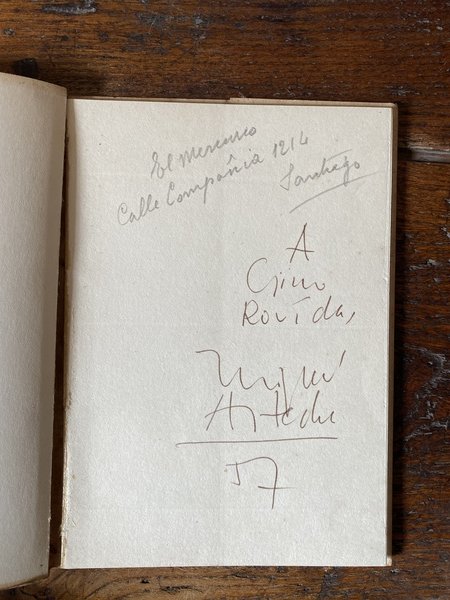 El Mercurio
Calle Compañia 1214
Santiago
A
Gino
Rovída,
Miguel
Arteche
57